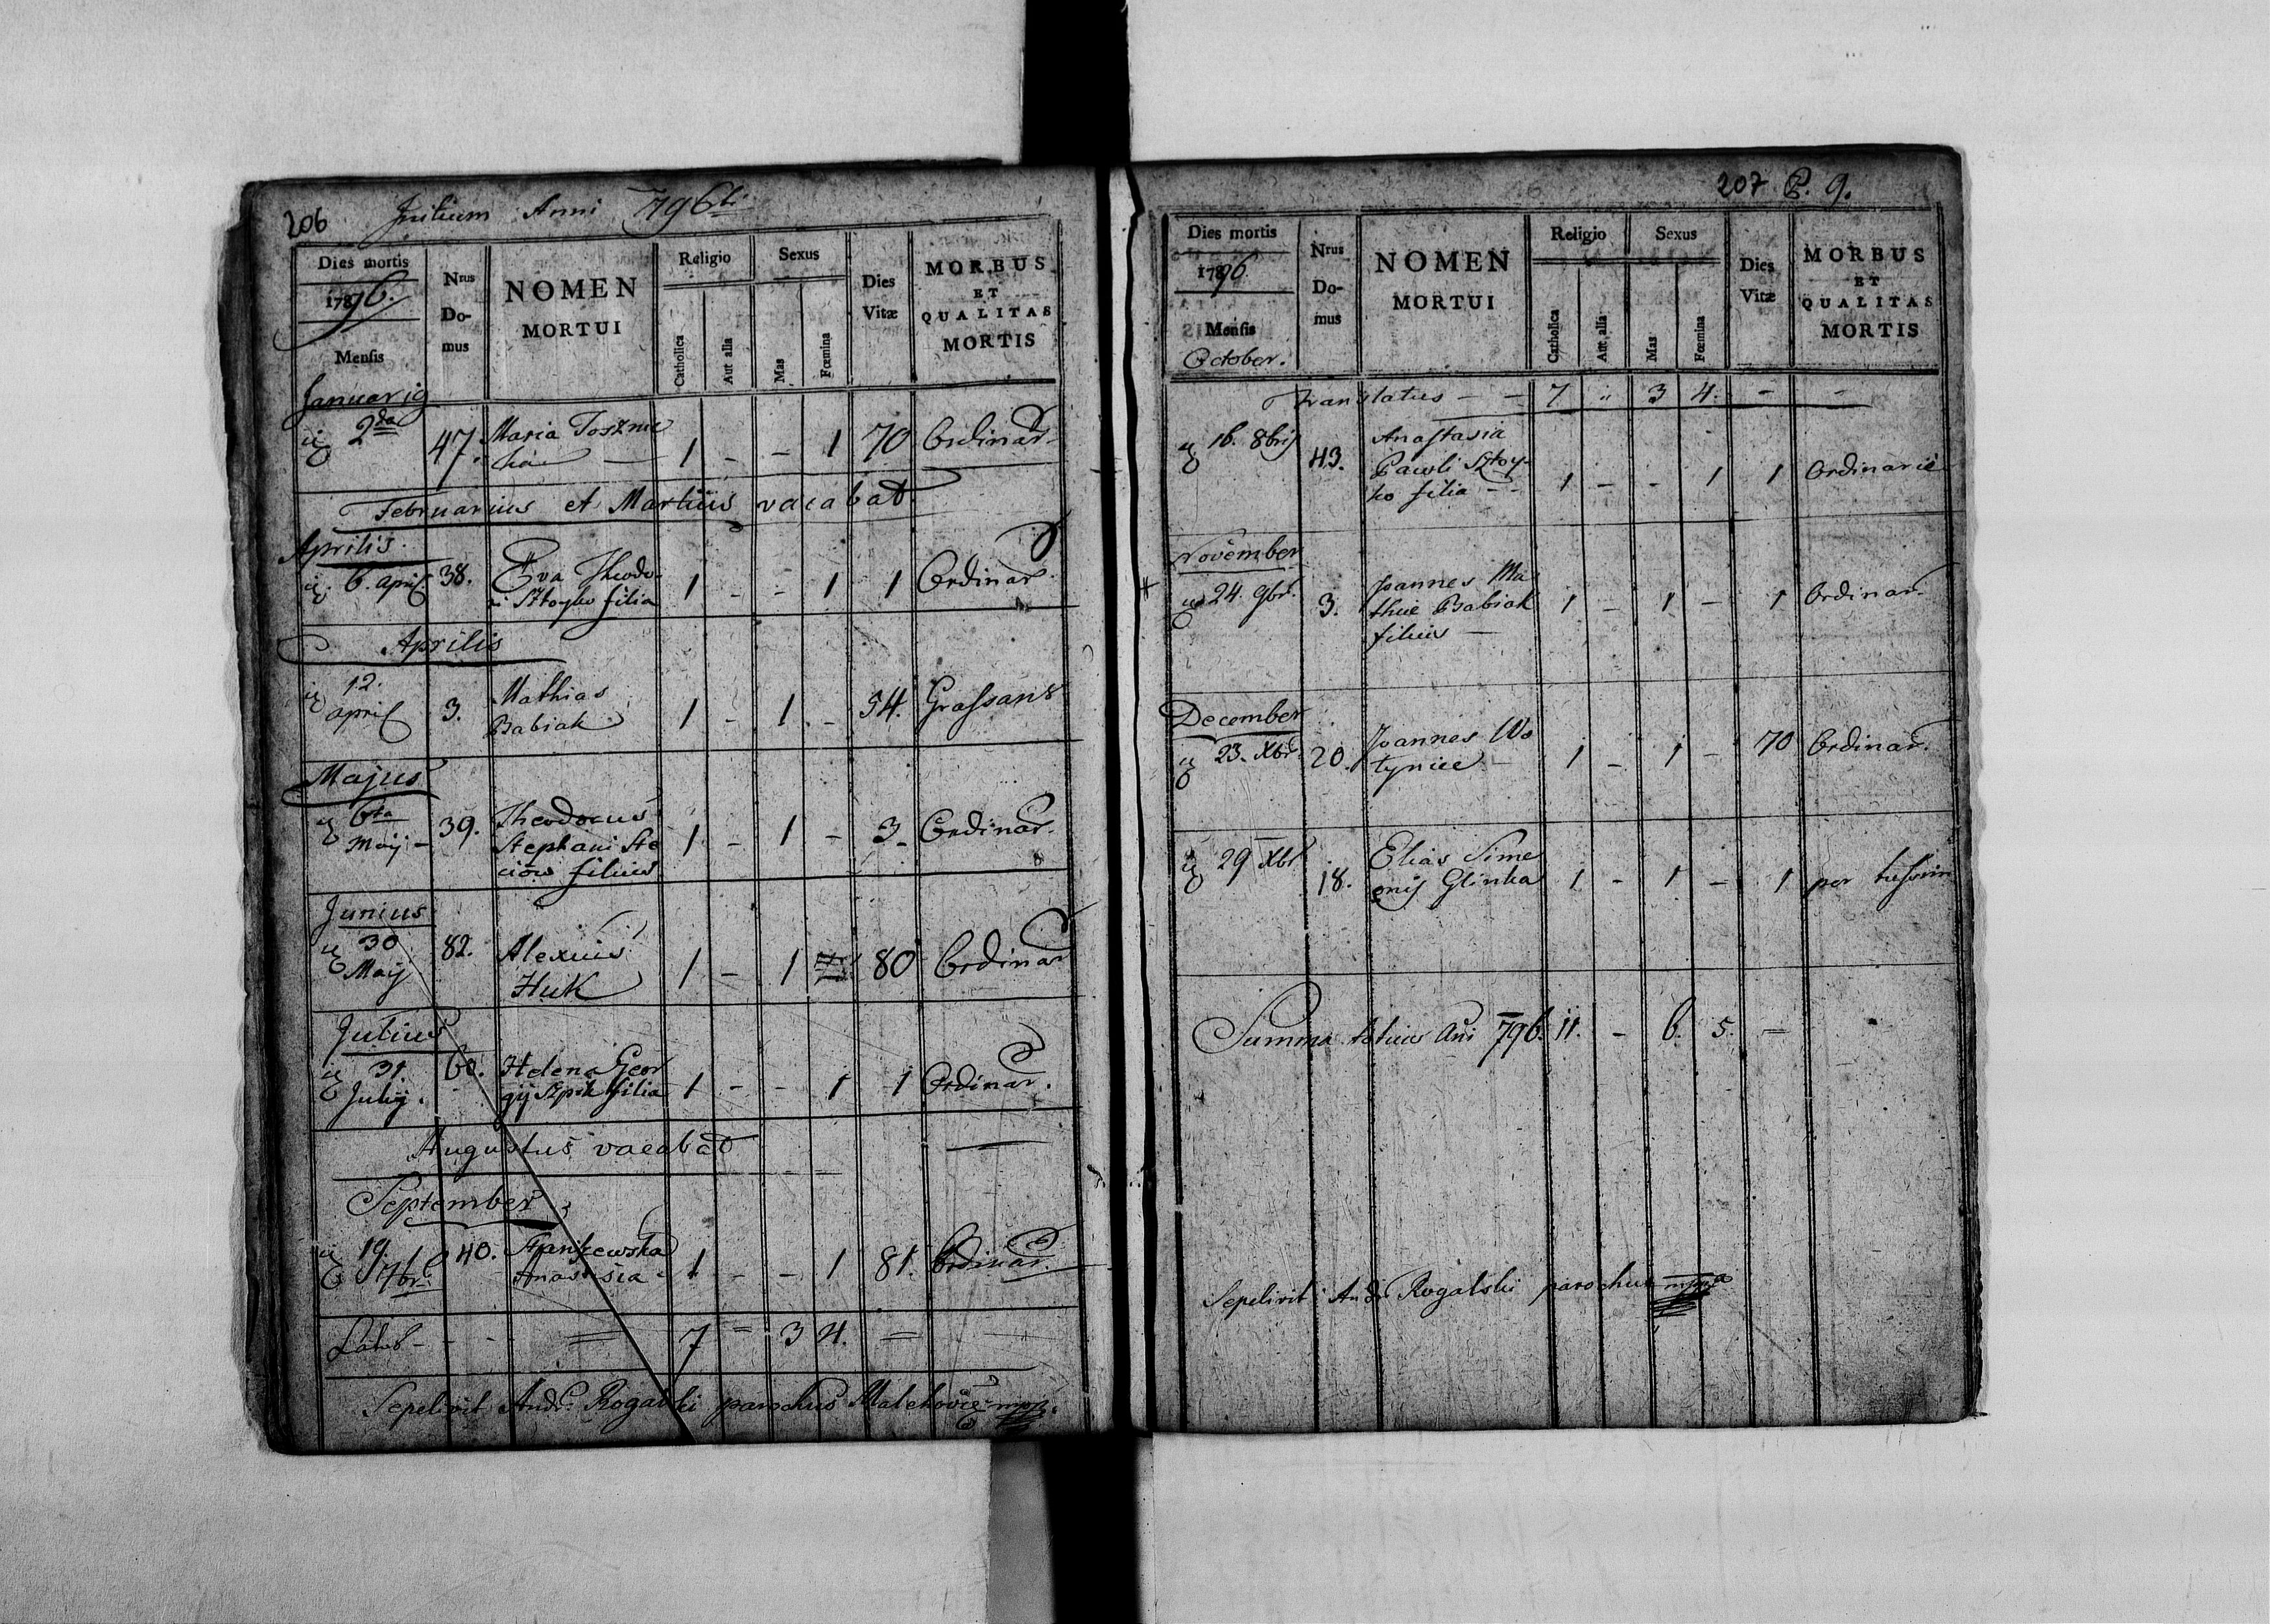 206 Initium Anni 796ti
Dies mortis
1796.
Mensis
Nrus
Do-
mus
NOMEN
MORTUI
Religio
Catholica
Aut alia
Sexus
Mas
Fœmina
Dies
Vitæ
MORBUS
ET
QUALITAS
MORTIS
Januarij
2da 47. Maria 1 - - 1 70 Ordinar.
Februarius et Martius vacabat
Aprilis
6. april 38. Eva Theodo-
ri Sztoyko filia 1 - - 1 1 Ordinar.
Aprilis
12.
april 3. Mathias
Babiak 1 - 1 - 54. Grassans
Majus
6ta
Maij - 39. Theodorus
Stephani Ste
ciow filius 1 - 1 - 3. Ordinar.
Junius
30
Maij 82. Alexius
Huk 1 - 1 80 Ordinar
Julius
31
Julij. 60. Helena Geor
gij Szpak filia 1 - - 1 1 Ordinar.
Augustus vacabat
September
19.
7br. 40. Stankewska
Anastasia 1 - - 1 81. Ordinar.
Latus - - - 7 = 3 4. =
Sepelivit Andr. Rogalski parochus Malehovie mpp.
207 P. 9.
Dies mortis
1796.
Mensis
October.
Nrus
Do-
mus
NOMEN
MORTUI
Religio
Catholica
Aut alia
Sexus
Mas
Fœmina
Dies
Vitæ
MORBUS
ET
QUALITAS
MORTIS
Translatus - - 7 " 3 4. - -
16. 8bris 43. Anastasia
Pawli Sztoy-
ko filia - - 1 - - 1 1 Ordinarie
November
24. 9br. 3. Joannes Ma
thie Babiak
filius - 1 - 1 - 1 Ordinar.
December
23. Xbr. 20. Joannes Wo
tyniec - 1 - 1 - 70 Ordinar.
29 Xbr 18. Elias Sime
onis Glinka 1 - 1 - 1 per tussim
Summa totius Ani 796. 11. - 6. 5. -
Sepelivit Andr Rogalski parochus mppa